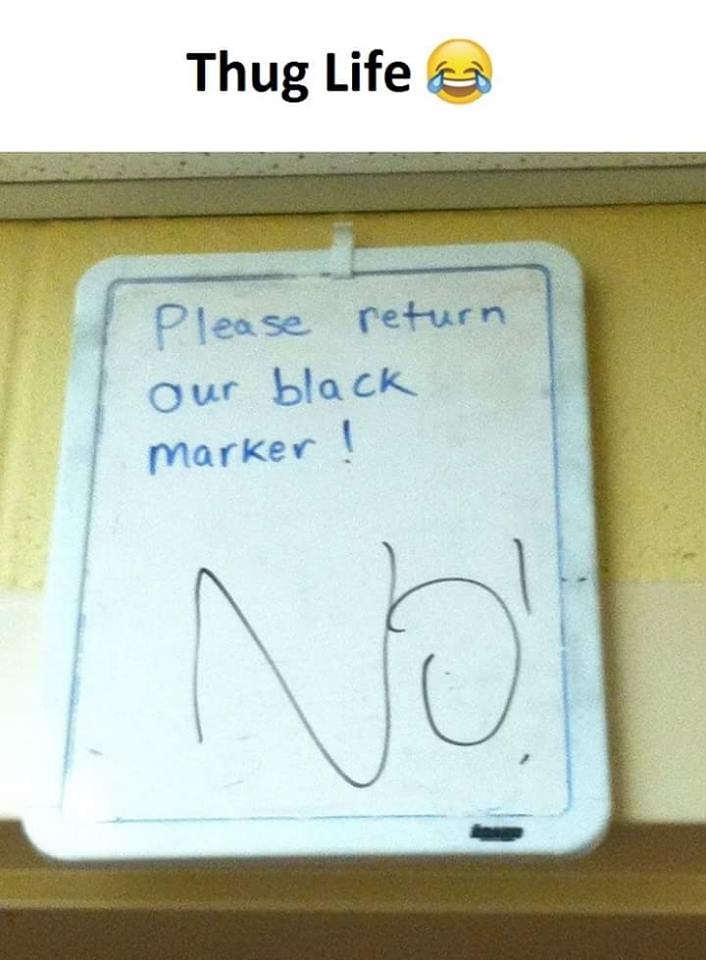 Thug Life 😂
Please return
our black
marker!
No!